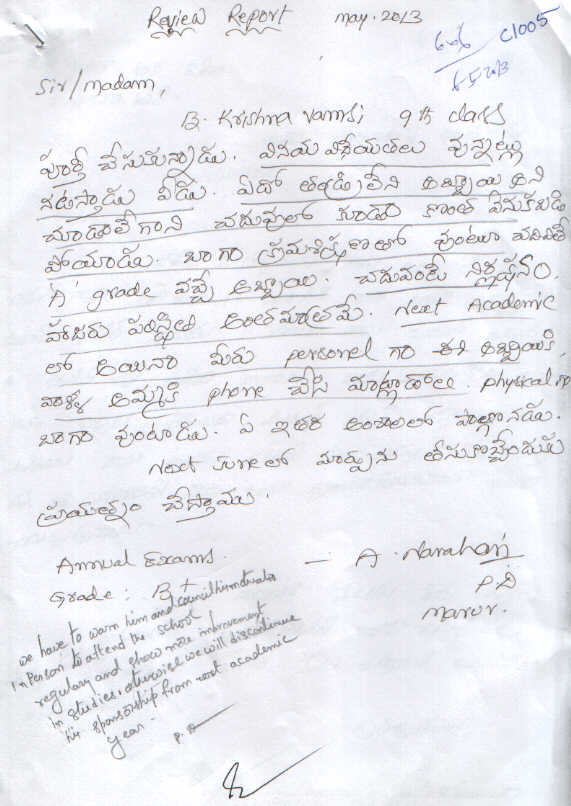 Review Report May. 2013
C1005
6.5.2013
Sir/madam,
B. Krishna vamsi 9th class
పూర్తి చేసుకున్నాడు. వినయ విధేయతలు వున్నట్లు
నటిస్తాడు వీడు. ఏదో తండ్రిలేని అబ్బాయి అని
చూడాలేగాని చదువులో కూడా కొంత వెనుకబడి
పోయాడు. బాగా క్రమశిక్షణలో వుంటూ చదివితే
'A' grade వచ్చే అబ్బాయి. చదువంటే నిర్లక్ష్యం.
హాజరు పరిస్థితి అంతమాత్రమే. Next Academic
లో అయినా మీరు personel గా ఈ అబ్బాయికి,
వాళ్ళ అమ్మకి phone చేసి మాట్లాడాలి. physical గా
బాగా వుంటాడు. ఏ ఇతర అంశాలలో పాల్గొనడు.
Next June లో మార్పును తీసుకొచ్చేందుకు
ప్రయత్నం చేస్తాము.
Annual Exams. — A. Narahari
Grade : B+ P.D
Marur.
we have to warn him and council him
in person to attend the school
regulary and show more improvement
in studies, otherwise we will discontinue
his sponsorship from next academic
year.